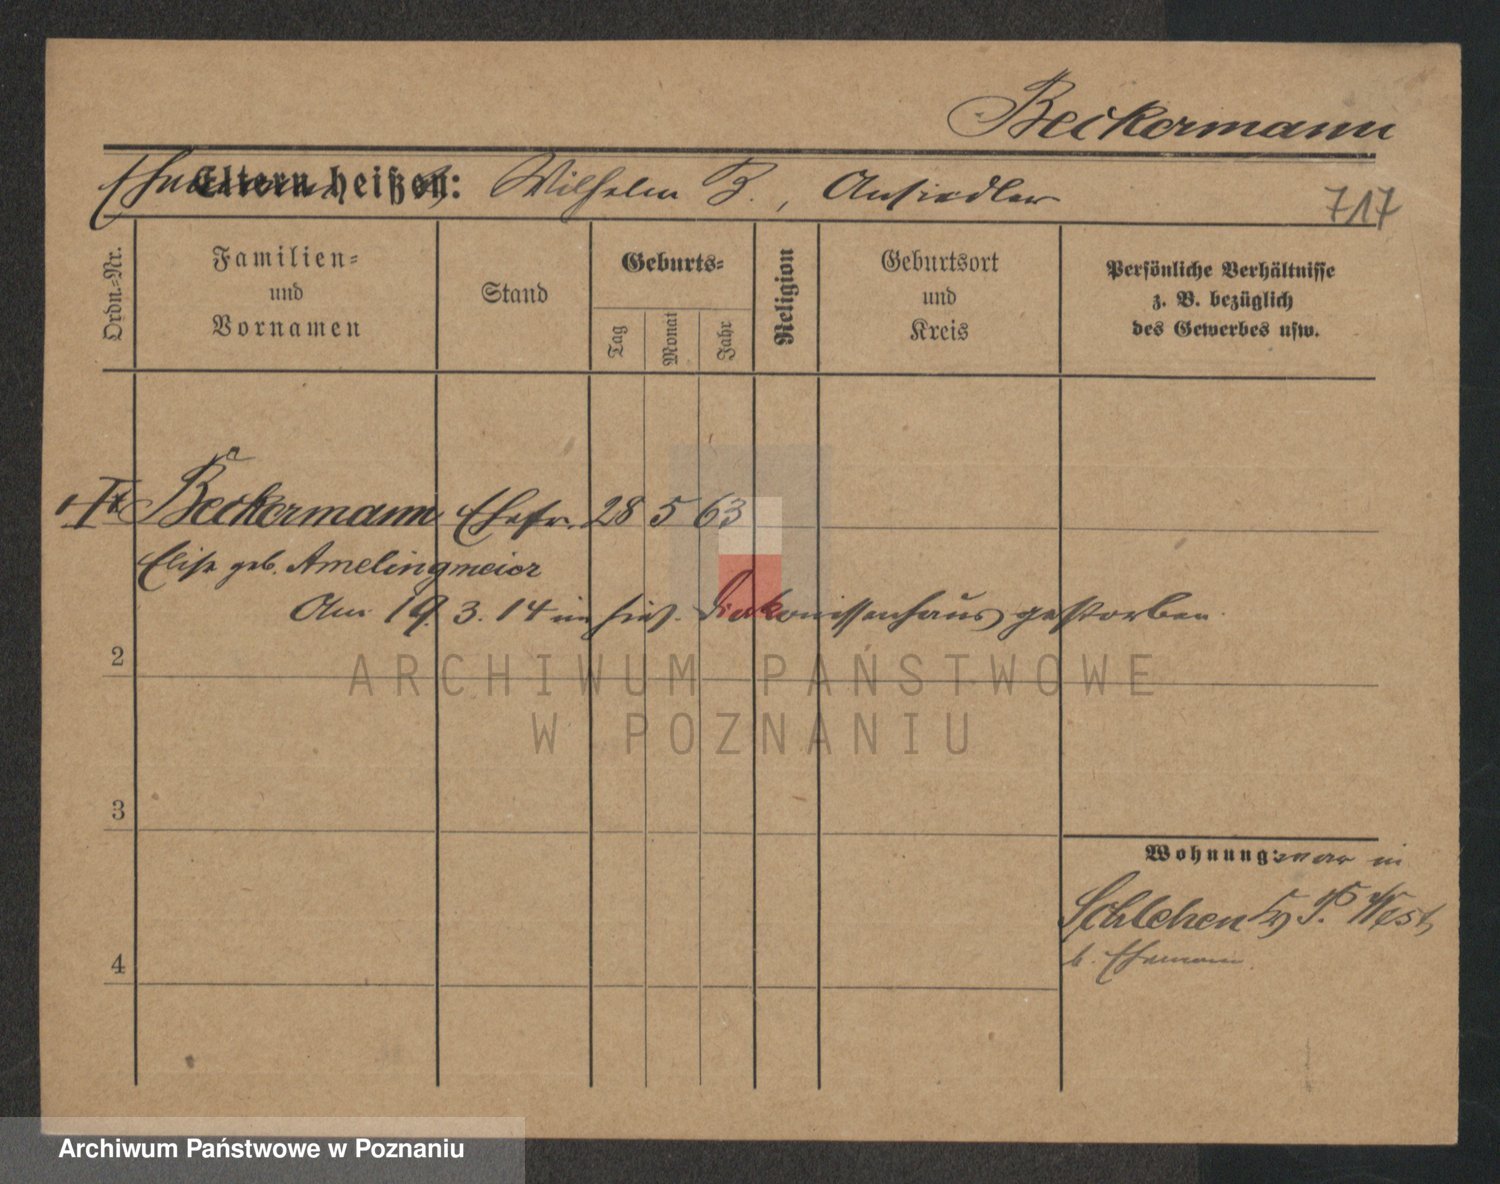 Beckermann
Eltern heißen: Wilhelm B., Ansiedler
717
Ordn.-Nr.
Familien-
und
Vornamen
Stand
Geburts-
Tag
Monat
Jahr
Religion
Geburtsort
und
Kreis
Persönliche Verhältnisse
z. B. bezüglich
des Gewerbes usw.
Beckermann Ehefr. 28 5 63
Elise geb. Amelingmeier
Am 19.3.14 im hies. Diakonissenhaus gestorben.
2
ARCHIWUM PAŃSTWOWE
W POZNANIU
3
Wohnung: war in
Schlehen P. West,
b. Ehemann.
4
Archiwum Państwowe w Poznaniu